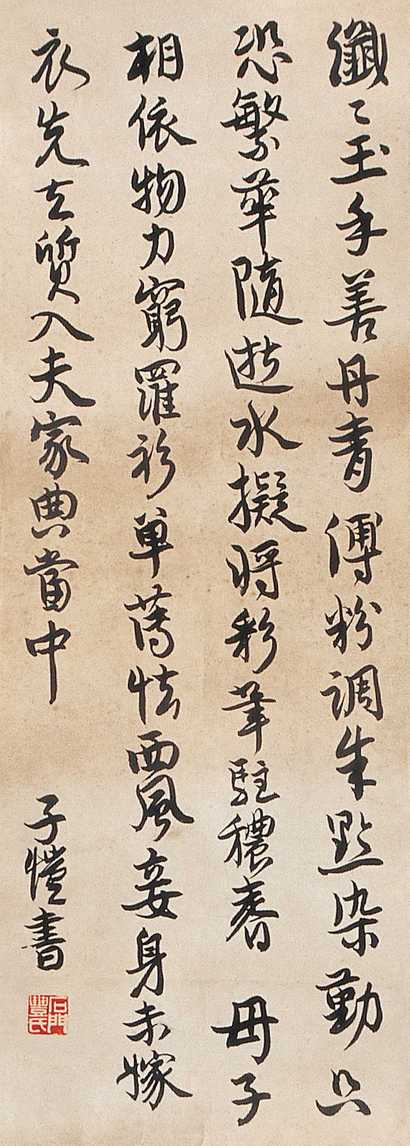 纖〻玉手善丹青傅粉調朱點染勤只
恐繁華隨逝水擬將彩筆駐穠春 母子
相依物力窮羅衫單薄怯西風妾身未嫁
衣先去質入夫家典當中
子愷書
石門豐氏